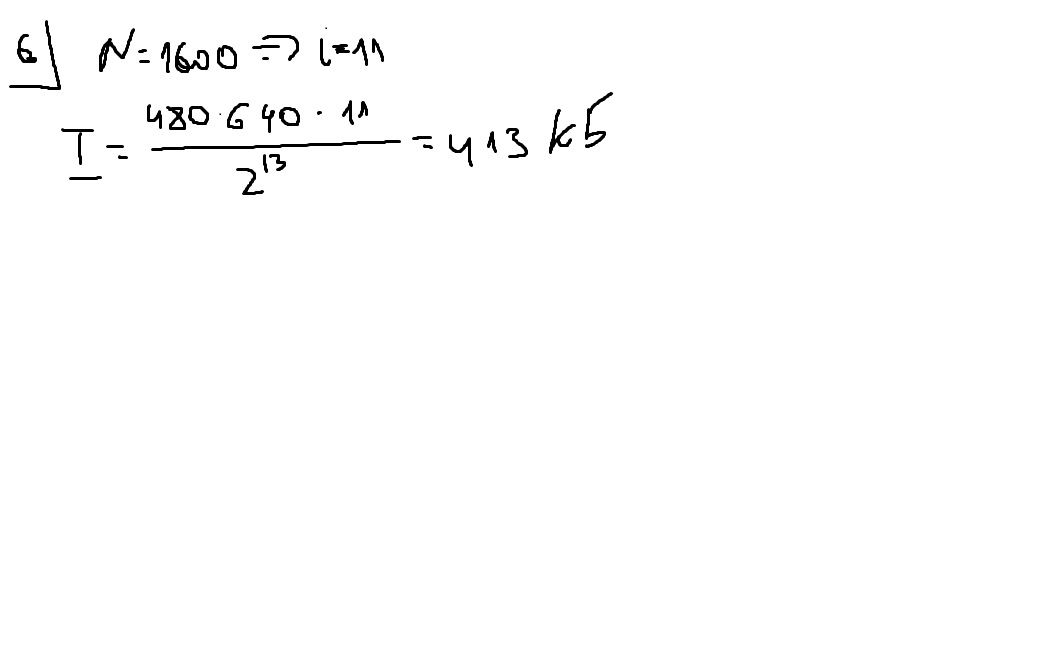 6) N=1600 => i=11
I = (480·640·11)/2^13 = 413 кБ